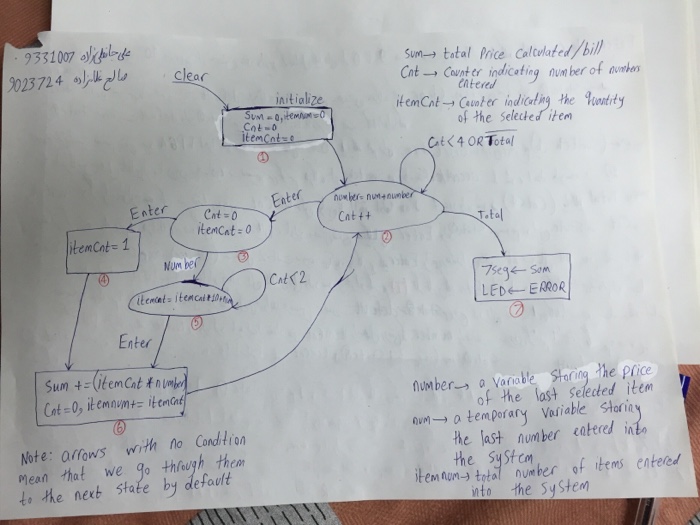 9331007
9023724
clear
Sum → total Price Calculated/bill
Cnt → Counter indicating number of numbers
entered
itemCnt → Counter indicating the quantity
of the selected item
initialize
Sum = 0, itemnum = 0
Cnt = 0
itemCnt = 0
①
Cnt < 4 OR Total
number = num+number
Cnt ++
②
Enter
Cnt = 0
itemCnt = 0
③
Enter
itemCnt = 1
④
Number
Cnt < 2
itemcnt = itemcnt*10+
⑤
Enter
Total
7seg ← Sum
LED ← ERROR
⑦
Sum += (itemCnt * number)
Cnt = 0, itemnum += itemCnt
⑥
number → a variable storing the price
of the last selected item
num → a temporary variable storing
the last number entered into
the system
itemnum → total number of items entered
into the system
Note: arrows with no Condition
mean that we go through them
to the next state by default